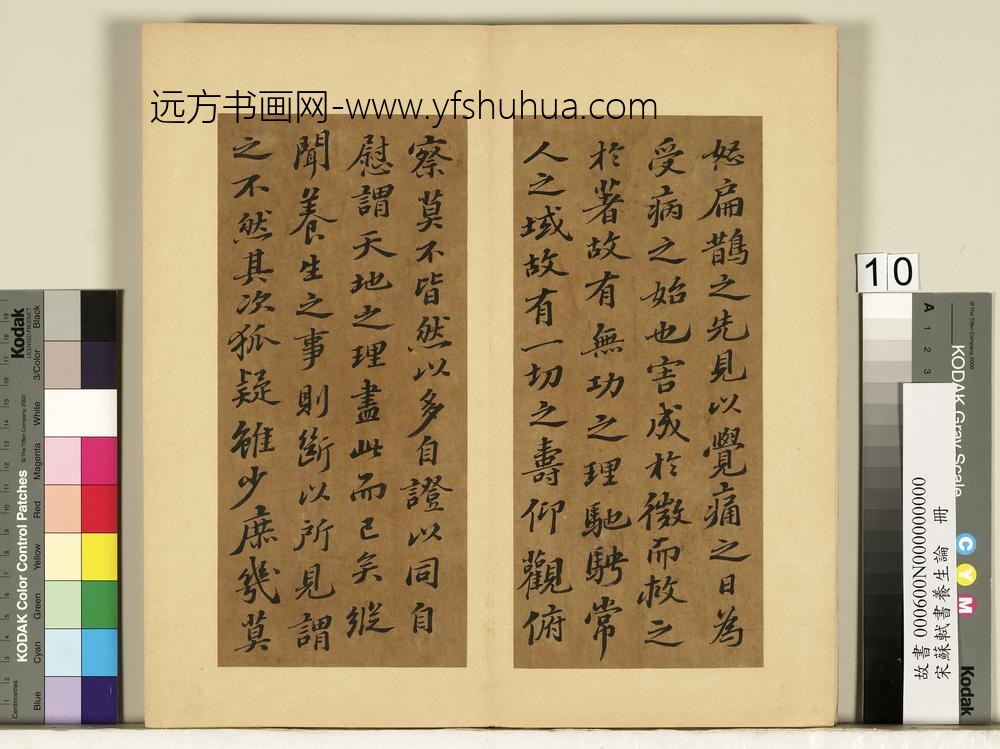 远方书画网-www.yfshuhua.com
怒扁鵲之先見以覺痛之日為
受病之始也害成於微而救之
於著故有無功之理馳騁常
人之域故有一切之壽仰觀俯
察莫不皆然以多自證以同自
慰謂天地之理盡此而已矣縱
聞養生之事則斷以所見謂
之不然其次狐疑雖少庶幾莫
10
故書000600N000000000
宋蘇軾書養生論 冊
Kodak
LICENSED PRODUCT
KODAK Color Control Patches
© The Tiffen Company, 2000
Centimetres
Blue
Cyan
Green
Yellow
Red
Magenta
White
3/Color
Black
© The Tiffen Company, 2000
KODAK Gray Scale
A 1 2 3
C Y M
Kodak